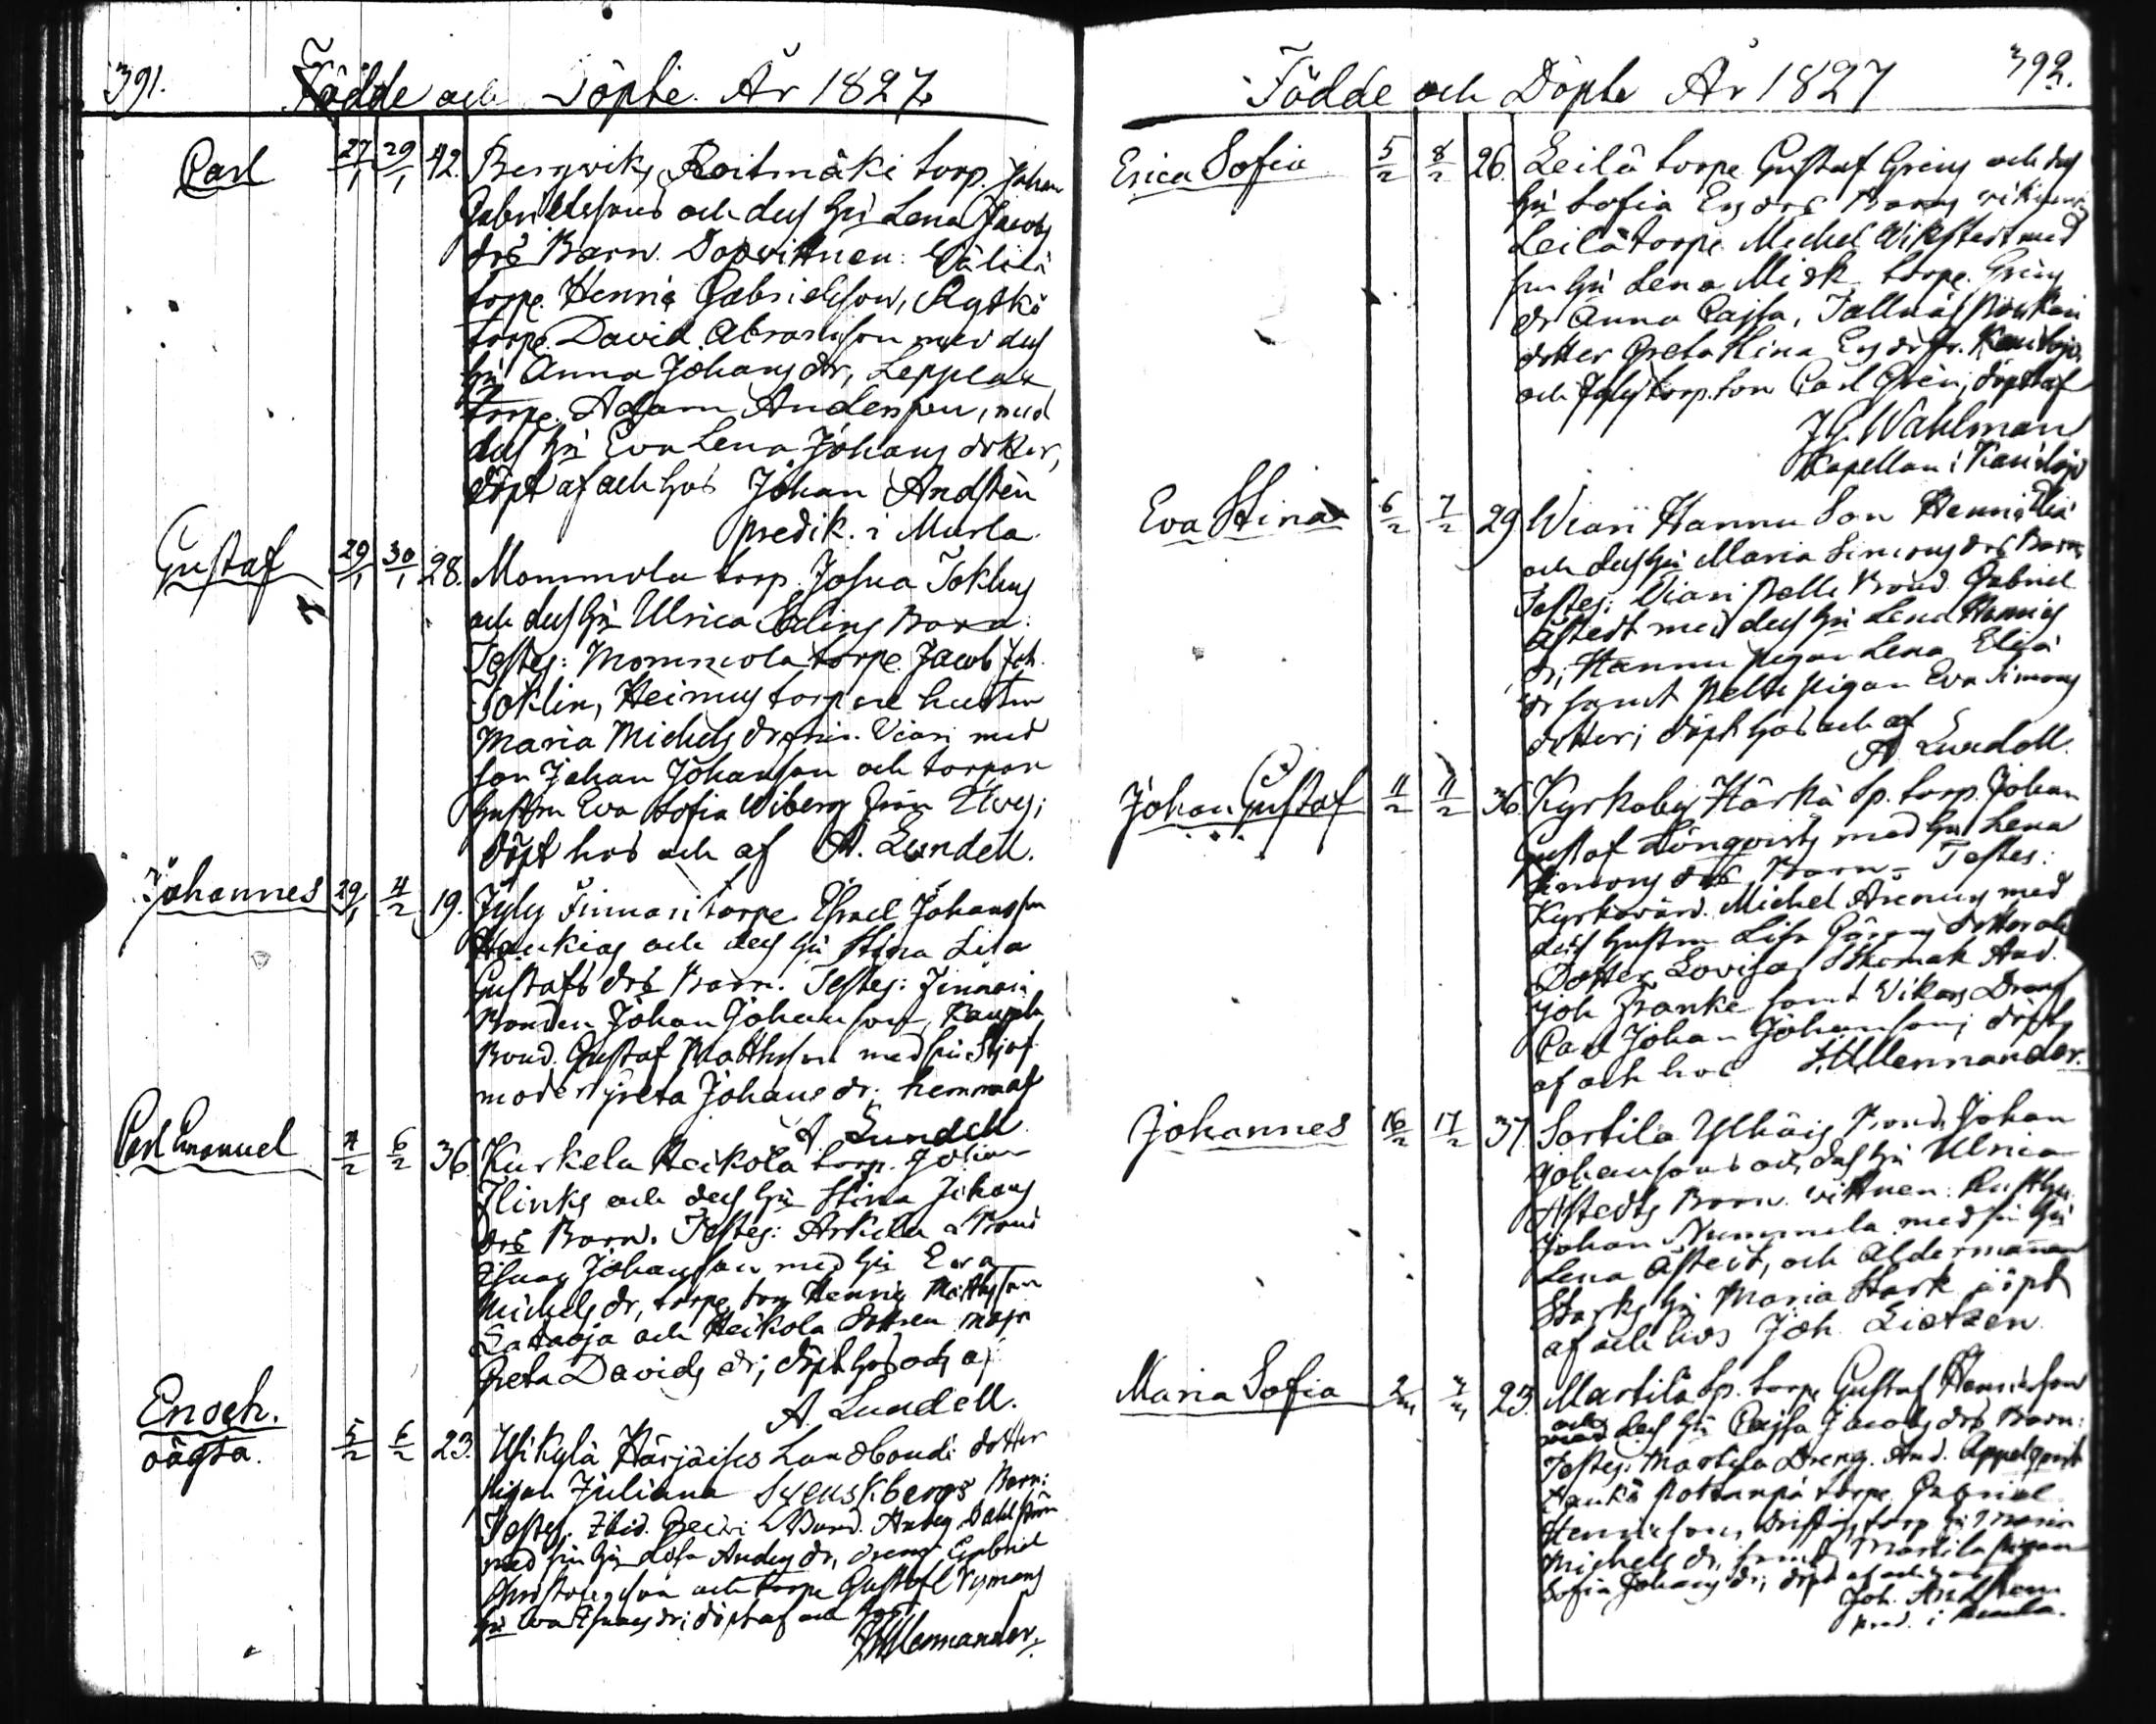 391.
Födde och Döpte År 1827.
Carl 27/1 29/1 42. Bergvik, Roitmäki torp. Johan
Gabrielssons och dess Hu Lena Jacobs
drs Barn. Dopvittnen: Wälilä
torpe. Henric Gabrielsson, Rytkö
torpe. David Abramsson med dess
Hu Anna Johans dr, Lepplax
torpe. Adam Andersson, med
dess hu Eva Lena Johans dotter,
döpt af och hos Johan Andsten
predik. i Murla.
Gustaf 29/1 30/1 28. Mommola torp. Josua Toklins
och dess Hu Ulrica Edling Barn.
Testes: Mommola torpe. Jacob Joh.
Toklin, Heimus torpare hustru
Maria Michels dr från Viari med
son Johan Johansson och torpar
hustru Eva Sofia Wiberg från Elves;
döpt hos och af A. Lundell.
Johannes 29/1 4/2 19. Jyly Finnari torpe. Efrael Johansson
Haukias och dess hu Stina Lisa
Gustafs drs Barn. Testes: Finnari
Bonden Johan Johansson,
Bond. Gustaf Mattsson med sin Stjuf
moder Greta Johans dr; hemma af
A Lundell.
Carl Emanuel 4/2 6/2 36. Kurkela Heikola torp. Johan
Flinks och dess hu Stina Johans
drs Barn. Testes: Arkila Bond
Isaac Johansson med hu Eva
Michels dr, torpe son Henric Mattsson
Sataoja och Heikola dottren
Greta Davids dr; döpt hos och af
A. Lundell.
Enoch. oägta. 5/2 6/2 23. Härjäises Landbonde dotter
Pigan Juliana Svenskbergs Barn:
Testes: Ibid. Bond. Anders Dahlström
med sin hu Lisa Anders dr, dreng Gabriel
Christoffersson och torpe Gustaf Nymans
hu Eva Isaacs dr; döpt af och hos
Mennander.
392.
Födde och Döpte År 1827
Erica Sofia 5/2 8/2 26. Leilä torpe Gustaf Grens och dess
hu Sofia drs Barn
Leilä torpe. Michel Wikstedt med
sin hu Lena Mick torpe. Gren
dr Anna Cajsa, Tallnäs
dotter Greta Stina
och Jyly torp. son Carl Gren; döpt af
J G. Wahlman
Kapellan i Karislojo
Eva Stina 6/2 7/2 29 Wiari Hannu Son Henric Elia
och dess hu Maria Simons drs Barn
Testes: Viari Pelle Bond Gabriel
Åstedt med dess hu Lena Henrics
dr; Hannu pigan Lena Elia
dr samt Pelle pigan Eva Simons
dotter; döpt hos och af
A Lundell.
Johan Gustaf 11/2 11/2 36. Kyrkoby Härkä Sp. torp. Johan
Gustaf Lönqvists med hu Lena
Simons drs Barn. Testes:
Kyrkovärd. Michel Arenius med
dess hustru Lisa Görans dotter och
Dotter Lovisa, And.
Joh Franke samt Vikars Dreng
Carl Johan Johansson; döpt
af och hos Mennander.
Johannes 16/2 17/2 37. Sortila Ylhäis Bond. Johan
Johanssons och dess hu Ulrica
Åstedts Barn. Vittnen: Rusth.
Johan Nummela med sin hu
Lena Åstedt, och Åldermannen
Starks hu Maria Stark döpt
af och hos Joh. Lietzen.
Maria Sofia 2/3 3/3 23. Martila Sp. torpe Gustaf Henricsson
och dess hu Cajsa Jacobs drs Barn:
Testes: Martila Dreng. And. Appelqvist
torpe. Gabriel
Henricsson, torp hu Maria
Michels dr, samt Martila pigan
Sofia Johans dr; döpt af och hos
Joh. Andsten
pred. i